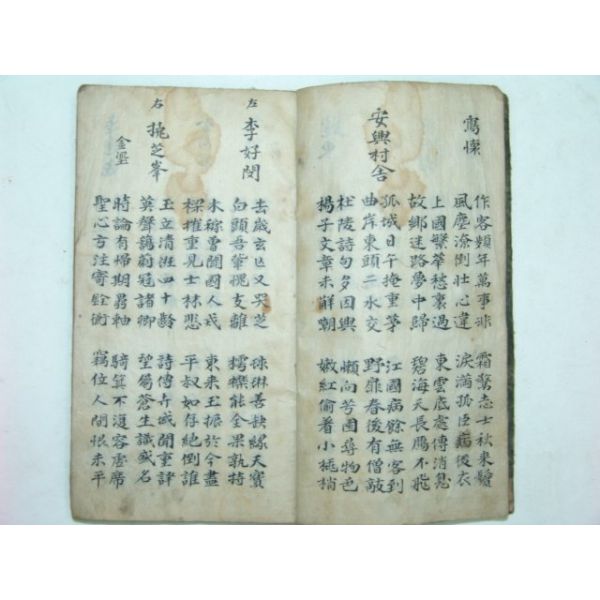 寓懷
作客頻年萬事非 霜驚志士秋來鬢
風塵潦倒壯心違 淚滿孤臣病後衣
上國繁華愁裏過 東雲底處傳消息
故鄉迷路夢中歸 碧海天長鴈不飛
安興村舍
孤城日午掩重茅 江國病餘無客到
曲岸東頭二水交 野扉春後有僧敲
杜陵詩句多因興 懶向芳園尋物色
揚子文章未解嘲 嫩紅偷着小桃梢
左 李好閔
去歲玄 又哭芝 善缺緣天實
白頭吾輩愧支離 樗櫟能全果孰持
木稼曾聞國人戒 東來玉振於今盡
樑摧重見士林悲 平叔如存絕倒誰
右 挽芝峯
金瑬
玉立清班四十齡 詩傳卉域聞重譯
英聲藹蔚冠諸卿 望屬蒼生識盛名
時論有歸期鼎軸 騎箕不返容虛席
聖心方注寄銓衡 竊位人間恨未平